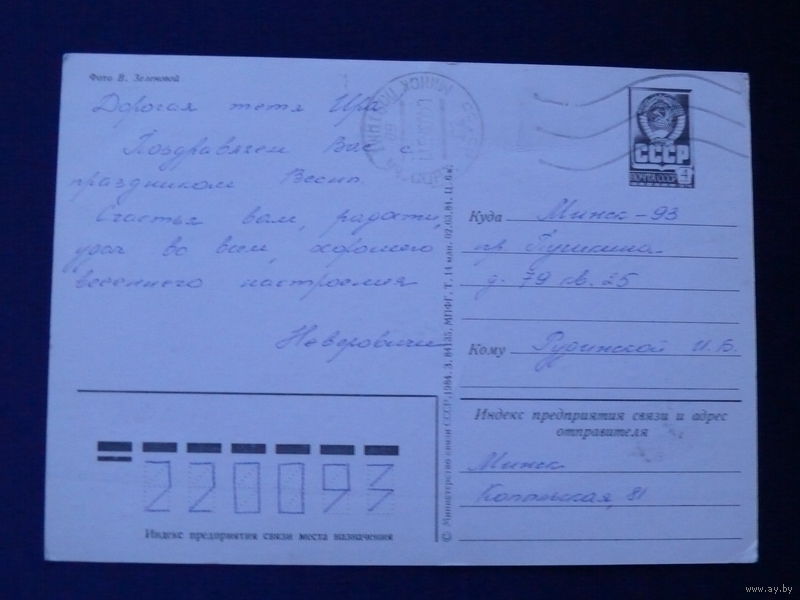 Фото В. Зеленовой
Дорогая тетя Ира
Поздравляем Вас с
праздником Весны.
Счастья вам, радости,
удач во всем, хорошего
весеннего настроения
Неверовичи
ПОЧТА СССР 4
СССР
Куда Минск-93
пр. Пушкина
д. 79 кв. 25
Кому Рудинской И.В.
Индекс предприятия связи и адрес
отправителя
Минск
81
220093
Индекс предприятия связи места назначения
© Министерство связи СССР, 1984. З. 84135. МПФГ. Т. 14 млн. 02.03.84. Ц. 6 к.
www.ay.by